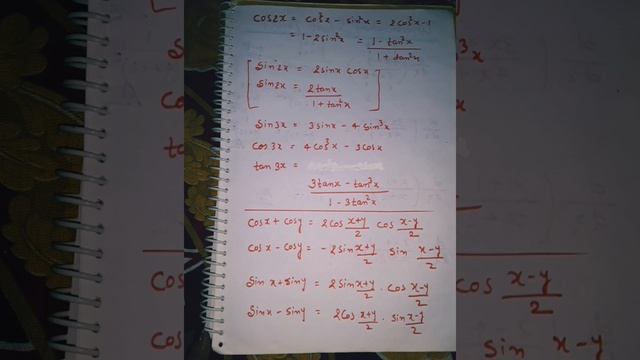 cos2x = cos²x - sin²x = 2cos²x-1
= 1-2sin²x = (1-tan²x)/(1+tan²x)
sin2x = 2sinx cosx
sin2x = 2tanx/(1+tan²x)
sin3x = 3sinx - 4sin³x
cos3x = 4cos³x - 3cosx
tan3x =
(3tanx - tan³x)/(1-3tan²x)
cosx + cosy = 2cos (x+y)/2 cos (x-y)/2
cosx - cosy = -2sin (x+y)/2 sin (x-y)/2
sinx + siny = 2sin (x+y)/2 . cos (x-y)/2
sinx - siny = 2cos (x+y)/2 . sin (x-y)/2